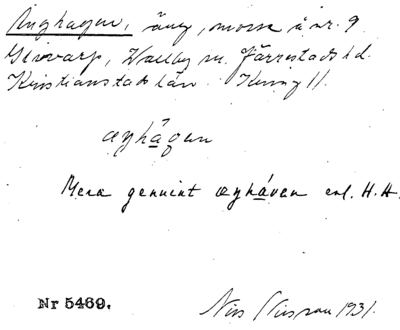 Änghagen, äng, mosse å nr. 9
Girvarp, Vallby sn. Järrestads hd.
Kristianstads län. Kung II.
æŋhagen
Mera genuint æŋháven enl. H.H.
Nr 5469. Nils Nilsson 1931.